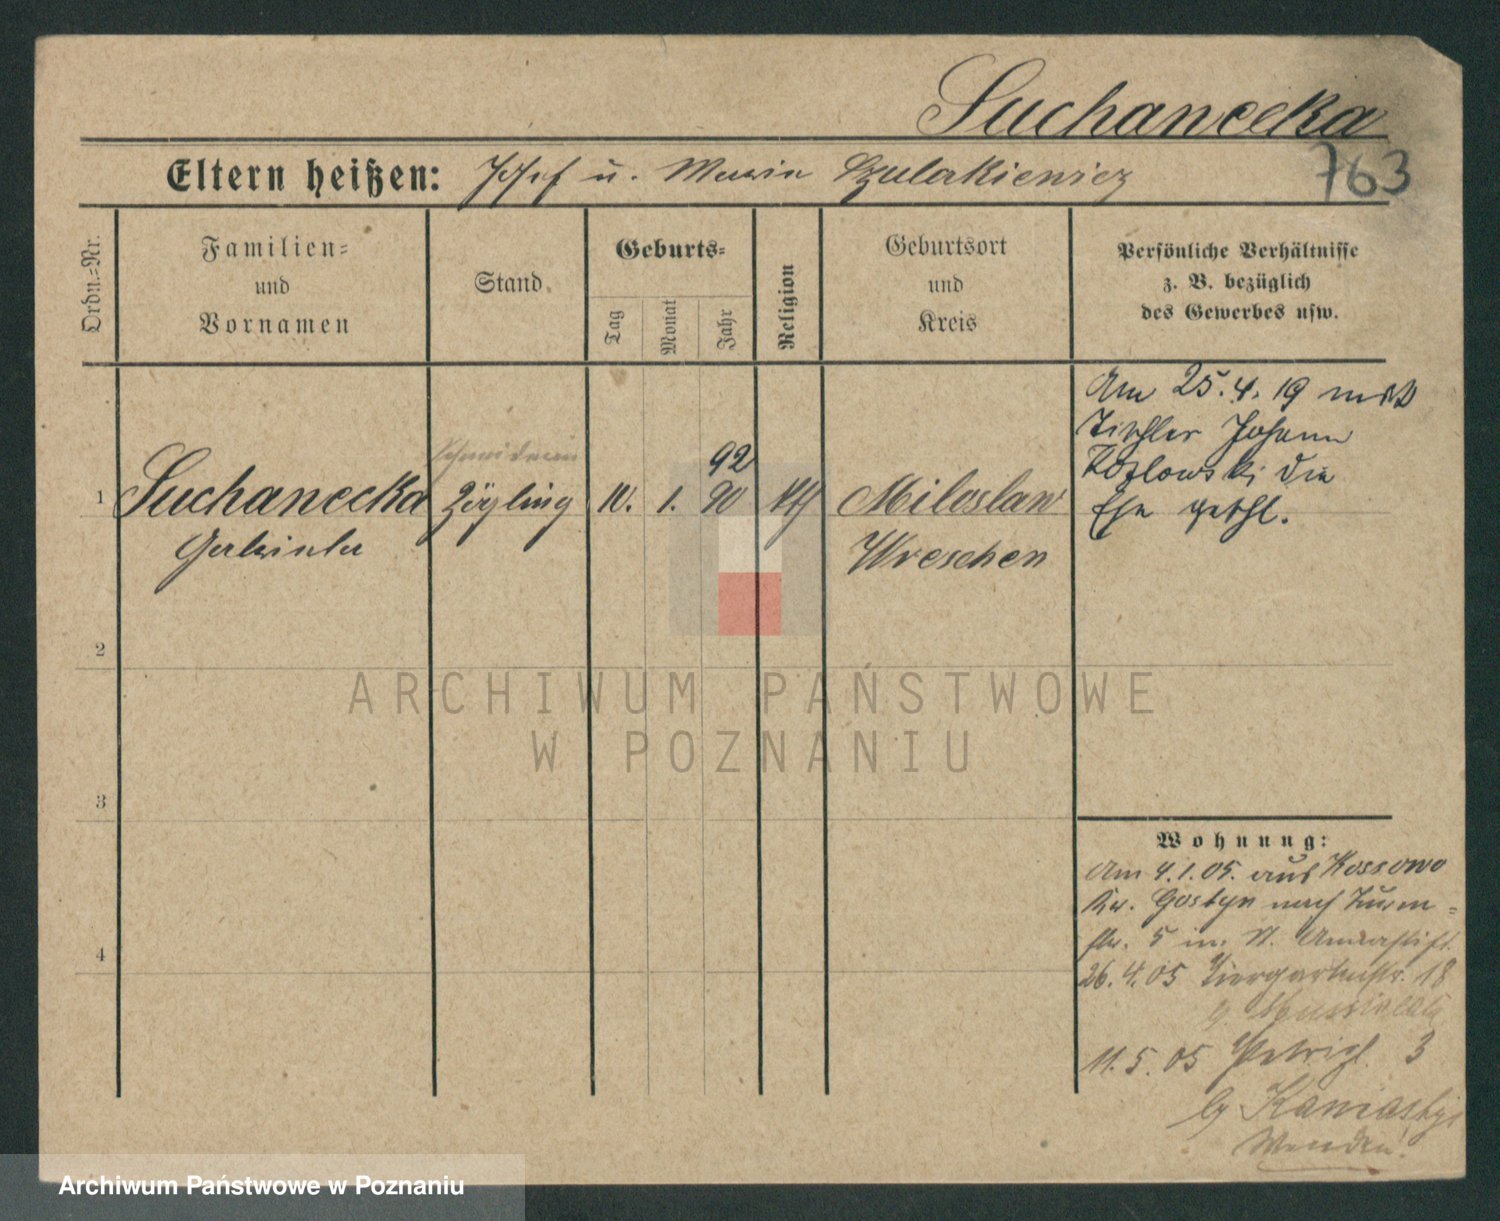 Suchanecka
Eltern heißen: Josef u. Maria Szulakiewicz
763
Ordn.=Nr.
Familien=
und
Vornamen
Stand
Geburts=
Tag
Monat
Jahr
Religion
Geburtsort
und
Kreis
Persönliche Verhältnisse
z. B. bezüglich
des Gewerbes usw.
Am 25.4.19 mit
Tischler Johann
Kozlowski die
Ehe geschl.
Schneiderin
92
1 Suchanecka Zögling 10. 1. 90 kth Miloslaw
Wreschen
2
3
4
Wohnung:
Am 4.1.05. aus Kossowo
Kr. Gostyn nach Turm=
str. 5 in St. Annastift.
26.4.05 Tiergartenstr. 18
11.5.05 Petripl. 3
Wenden!
ARCHIWUM PAŃSTWOWE
W POZNANIU
Archiwum Państwowe w Poznaniu